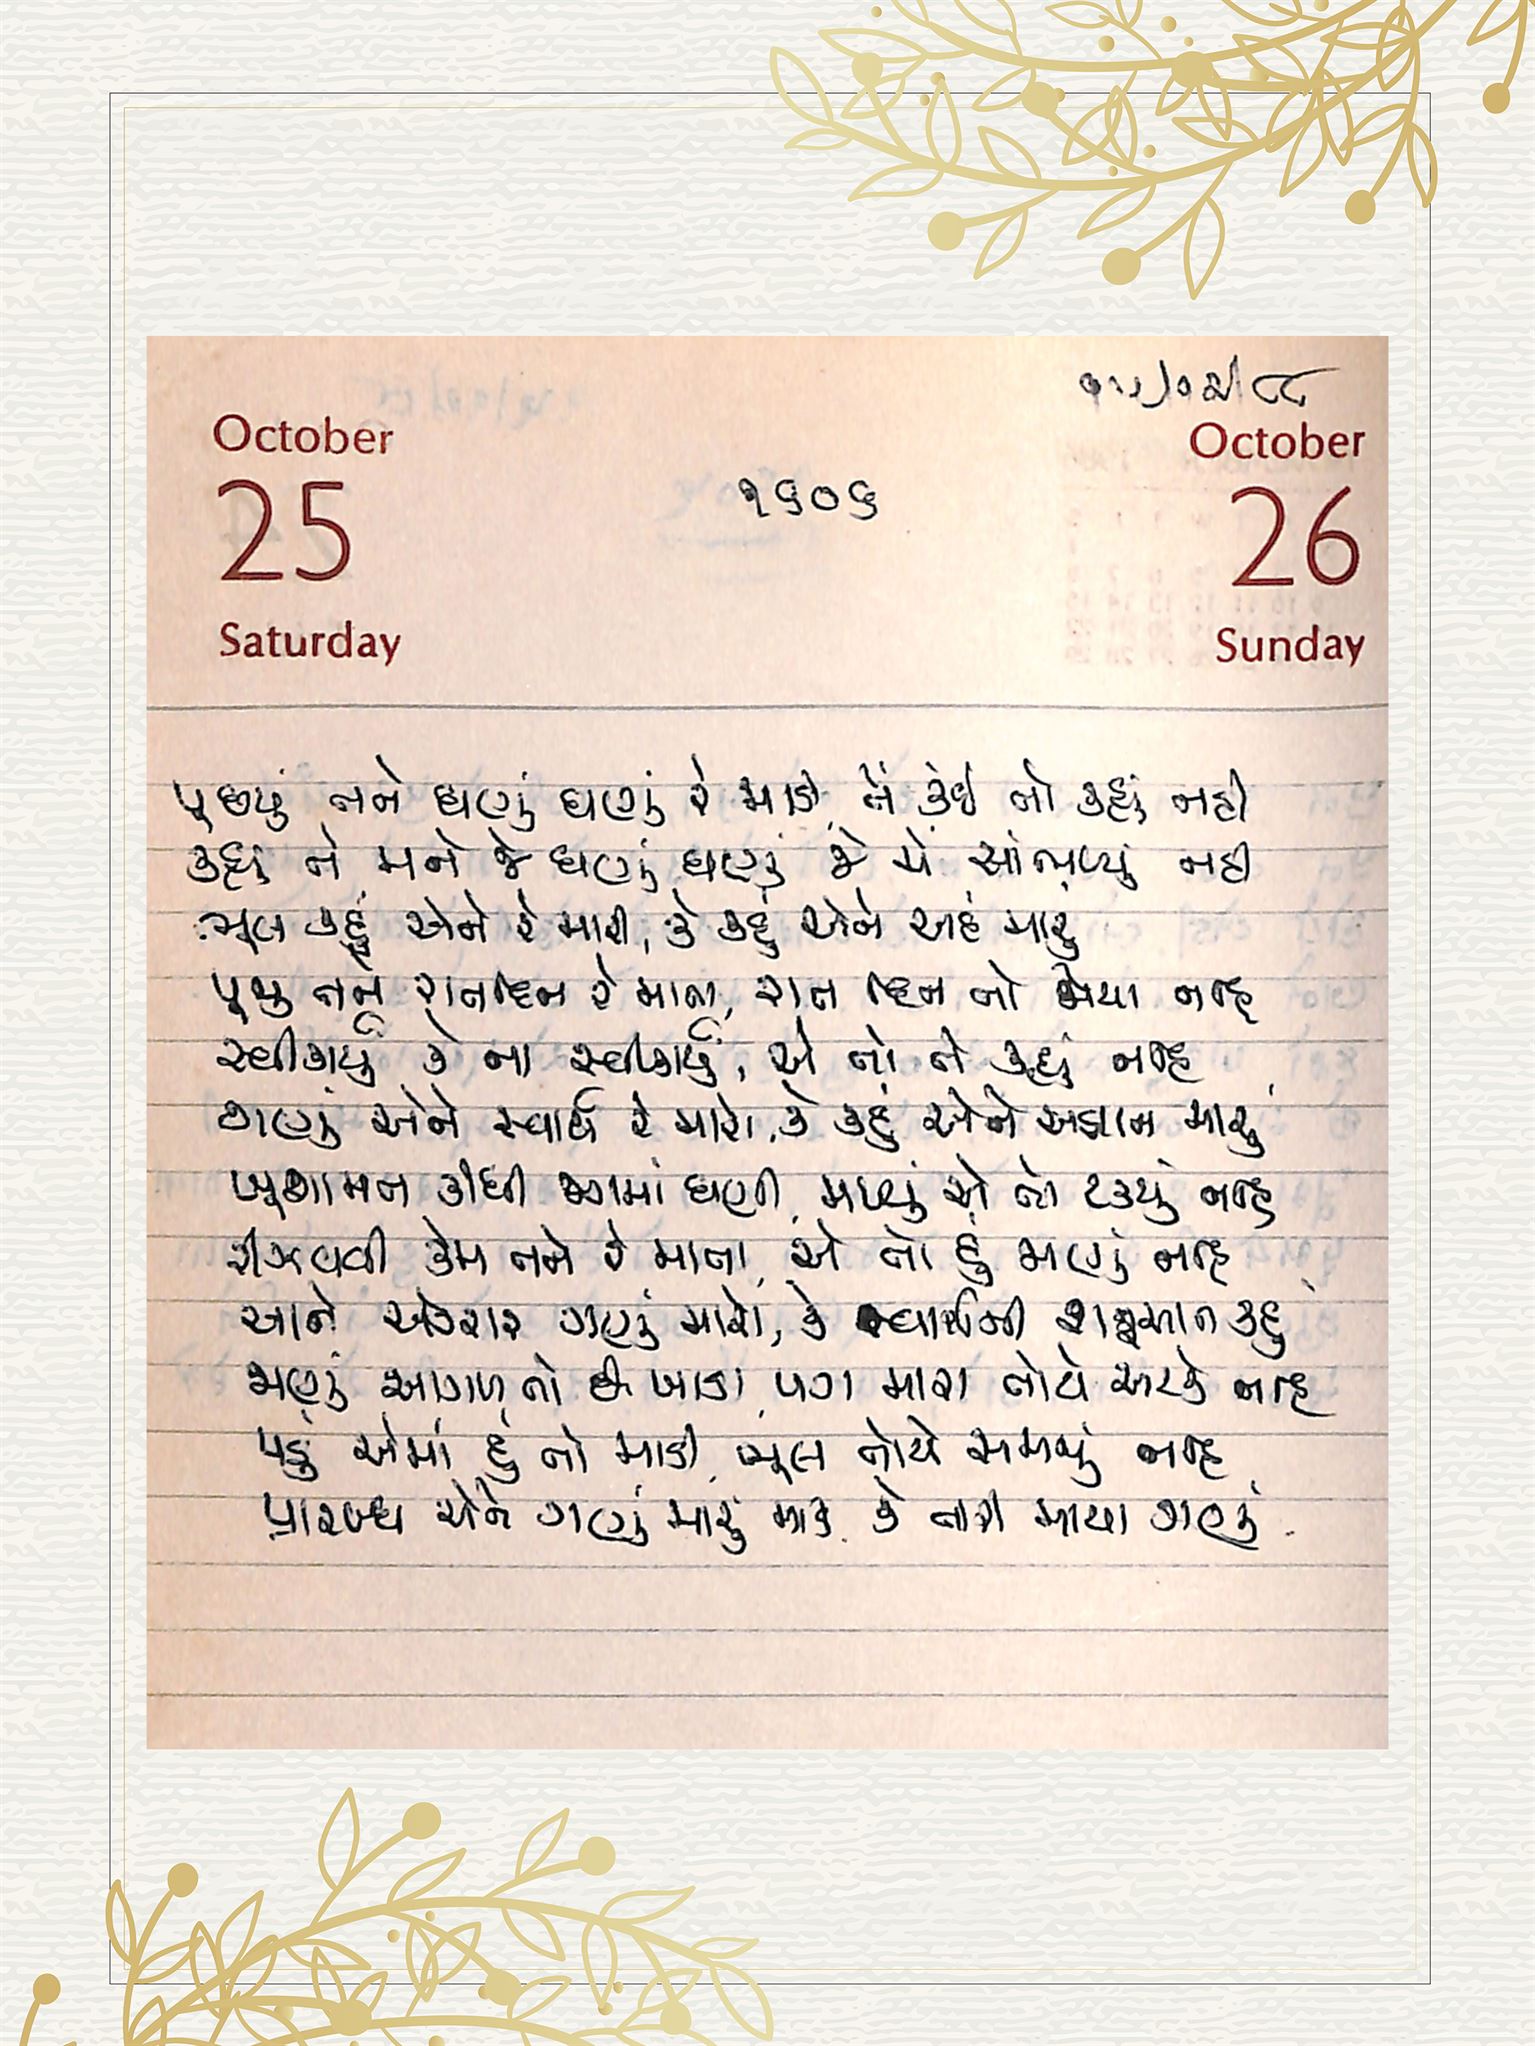 October
25
Saturday
૧૬૦૬
October
26
Sunday
પૂછ્યું તને ઘણું ઘણું રે માડી, તેં કંઈ તો કહ્યું નહી
કહ્યું તે મને જે ઘણું ઘણું જે મેં સાંભળ્યું નહી
ભૂલ કહું એને રે મારી, કે કહું એને અહં મારું
પૂજુ તને રાતદિન રે માતા, રાત દિન તો જોયા નહિ
સ્વીકાર્યું કે ના સ્વીકાર્યું, એ તો તે કહ્યું નહિ
ગણું એને સ્વાર્થ રે મારો, કે કહું એને અજ્ઞાન મારું
ખૂશામત કીધી જગમાં ઘણી, મળ્યું એ તો ટક્યું નહિ
રીઝવવી કેમ તને રે માતા, એ તો હું જાણું નહિ
આને એકરાર ગણું મારો, કે સ્વાર્થની શરૂઆત કહું
જાણું આગળ તો છે ખાડા, પગ મારા તોયે અટકે નહિ
પડું એમાં હું તો માડી, ભૂલ તોયે સમજું નહિ
પ્રારબ્ધ એને ગણું મારું માત, કે તારી માયા ગણું